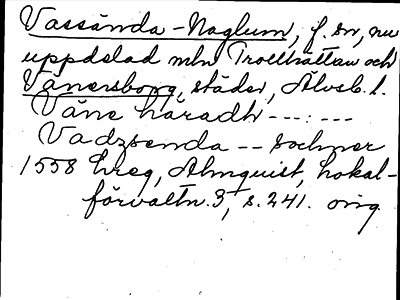 Vassända-Naglum, f. sn, nu
uppdelad mln Trollhättan och
Vänersborg, städer, Älvsb. l.
Väne häradh ---:---
Vadzsenda -- sochner
1558 hreg, Almquist, lokal-
förvaltn. 3, s. 241. orig.